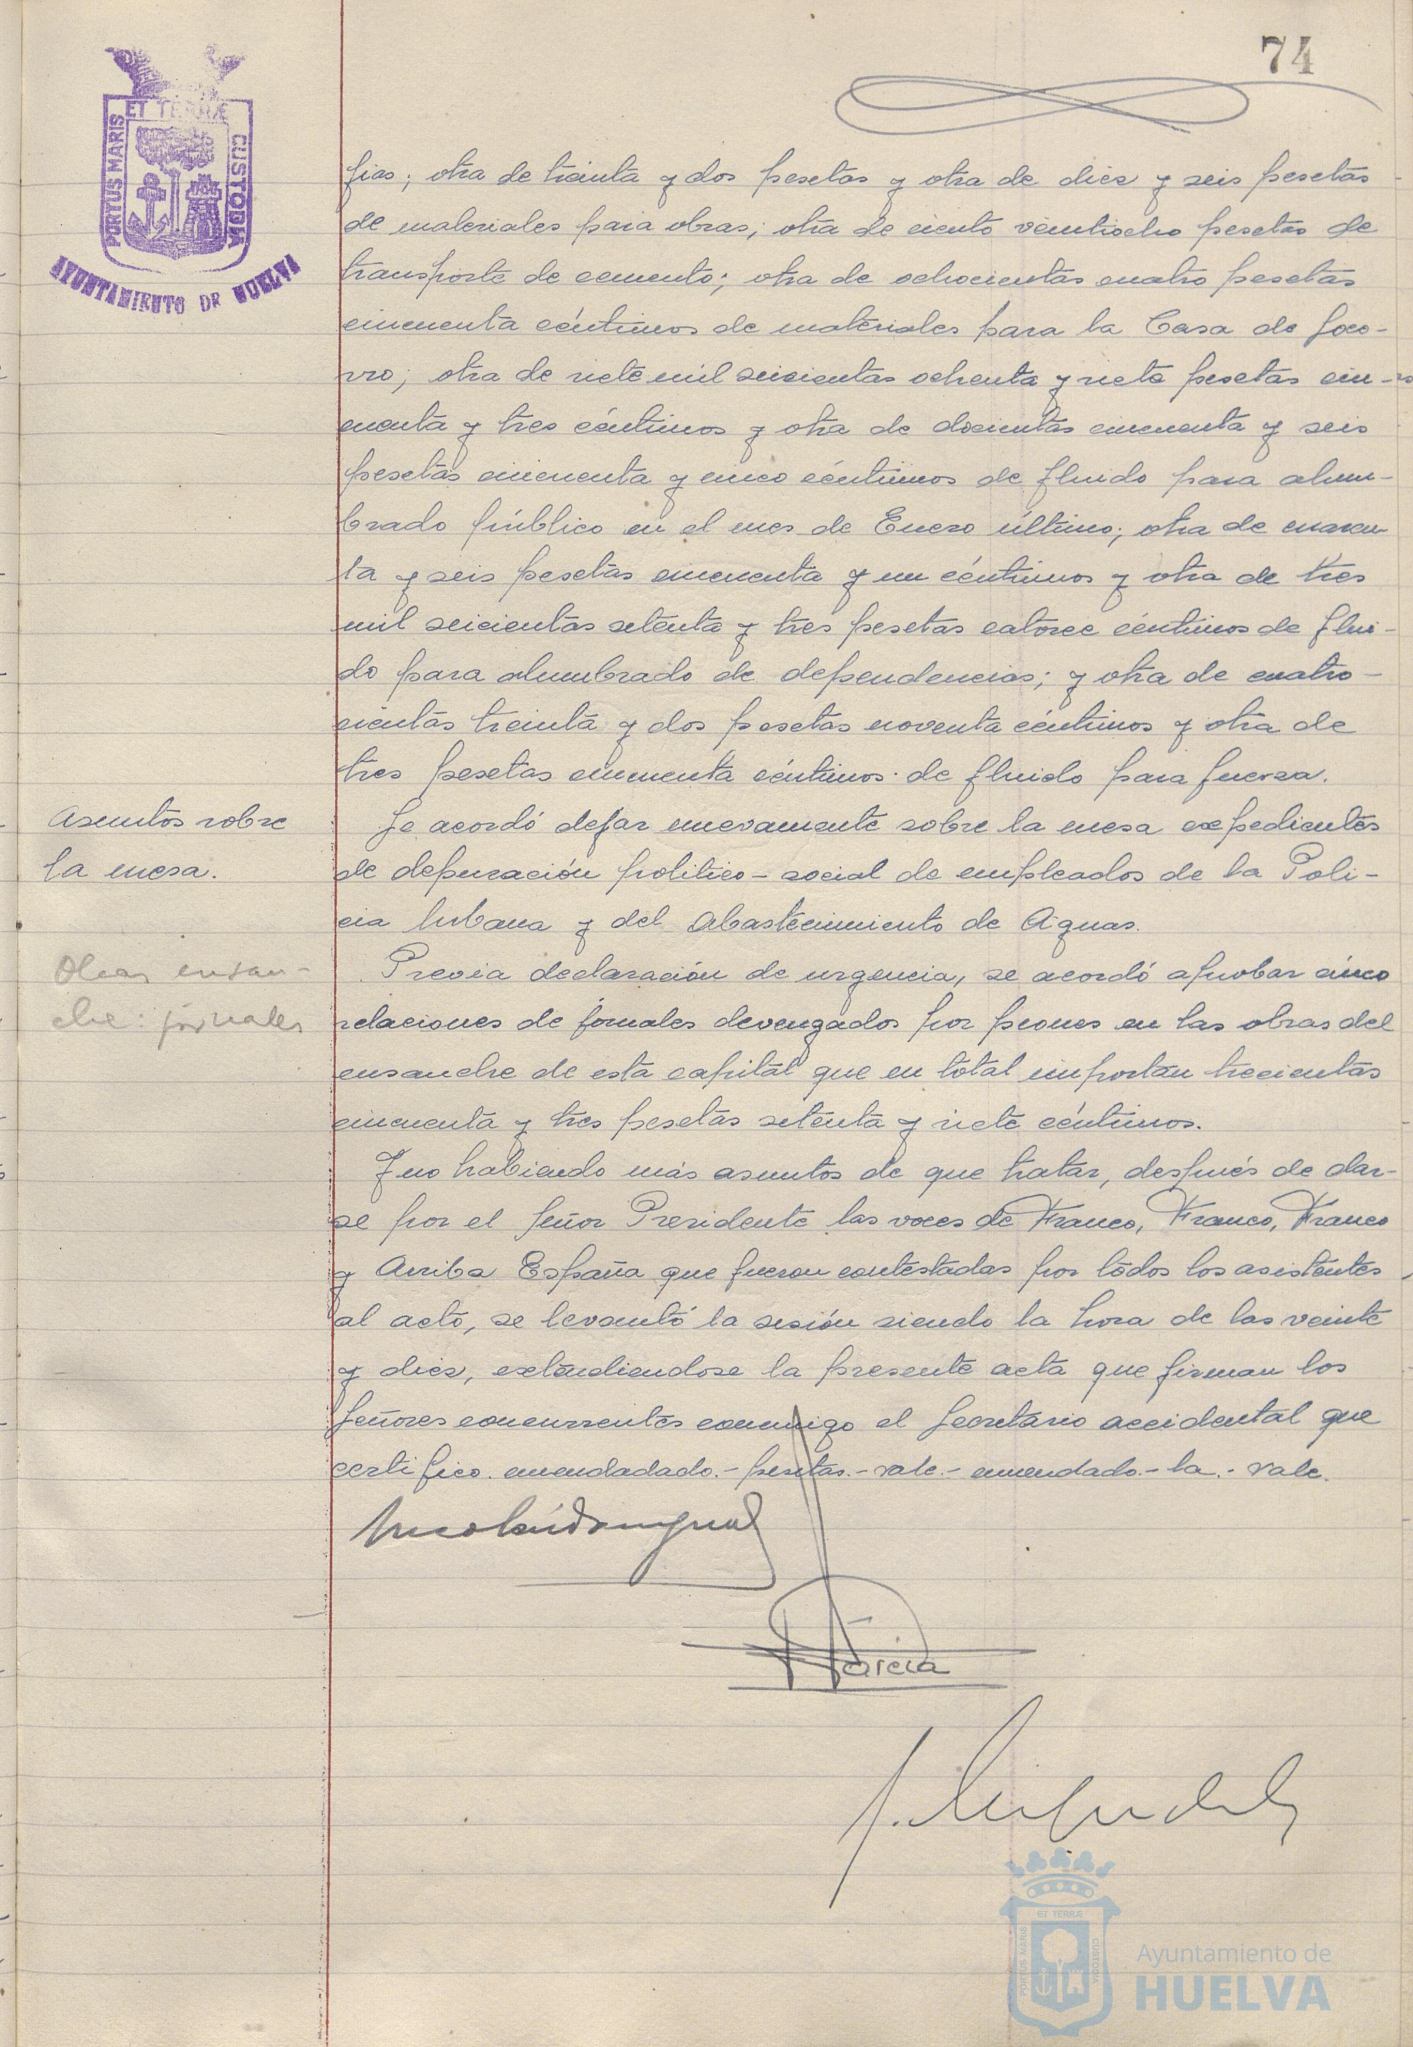 74
PORTUS MARIS
ET TERRÆ
CUSTODIA
AYUNTAMIENTO DE HUELVA
fias; otra de treinta y dos pesetas y otra de diez y seis pesetas
de materiales para obras; otra de ciento veintiocho pesetas de
transporte de cemento; otra de ochocientas cuatro pesetas
cincuenta céntimos de materiales para la Casa de Soco-
rro; otra de siete mil seicientas ochenta y siete pesetas cin-
cuenta y tres céntimos y otra de docientas cincuenta y seis
pesetas cincuenta y cinco céntimos de fluido para alum-
brado público en el mes de Enero último; otra de cuaren-
ta y seis pesetas cincuenta y un céntimos y otra de tres
mil seicientas setenta y tres pesetas catorce céntimos de flui-
do para alumbrado de dependencias; y otra de cuatro-
cientas treinta y dos pesetas noventa céntimos y otra de
tres pesetas cincuenta céntimos de fluido para fuerza.
Asuntos sobre
la mesa.
Se acordó dejar nuevamente sobre la mesa expedientes
de depuración político-social de empleados de la Poli-
cia Urbana y del Abastecimiento de Aguas.
Obras ensan-
che: jornales
Previa declaración de urgencia, se acordó aprobar cinco
relaciones de jornales devengados por peones en las obras del
ensanche de esta capital que en total importan trecientas
cincuenta y tres pesetas setenta y siete céntimos.
Y no habiendo más asuntos de que tratar, después de dar-
se por el Señor Presidente las voces de Franco, Franco, Franco
y Arriba España que fueron contestadas por todos los asistentes
al acto, se levantó la sesión siendo la hora de las veinte
y diez, extendiendose la presente acta que firman los
Señores concurrentes conmigo el Secretario accidental que
certifico. enmendadado.- pesetas.- vale.- enmendado.- la.- vale.
García
ET TERRÆ
PORTUS MARIS
CUSTODIA
Ayuntamiento de
HUELVA